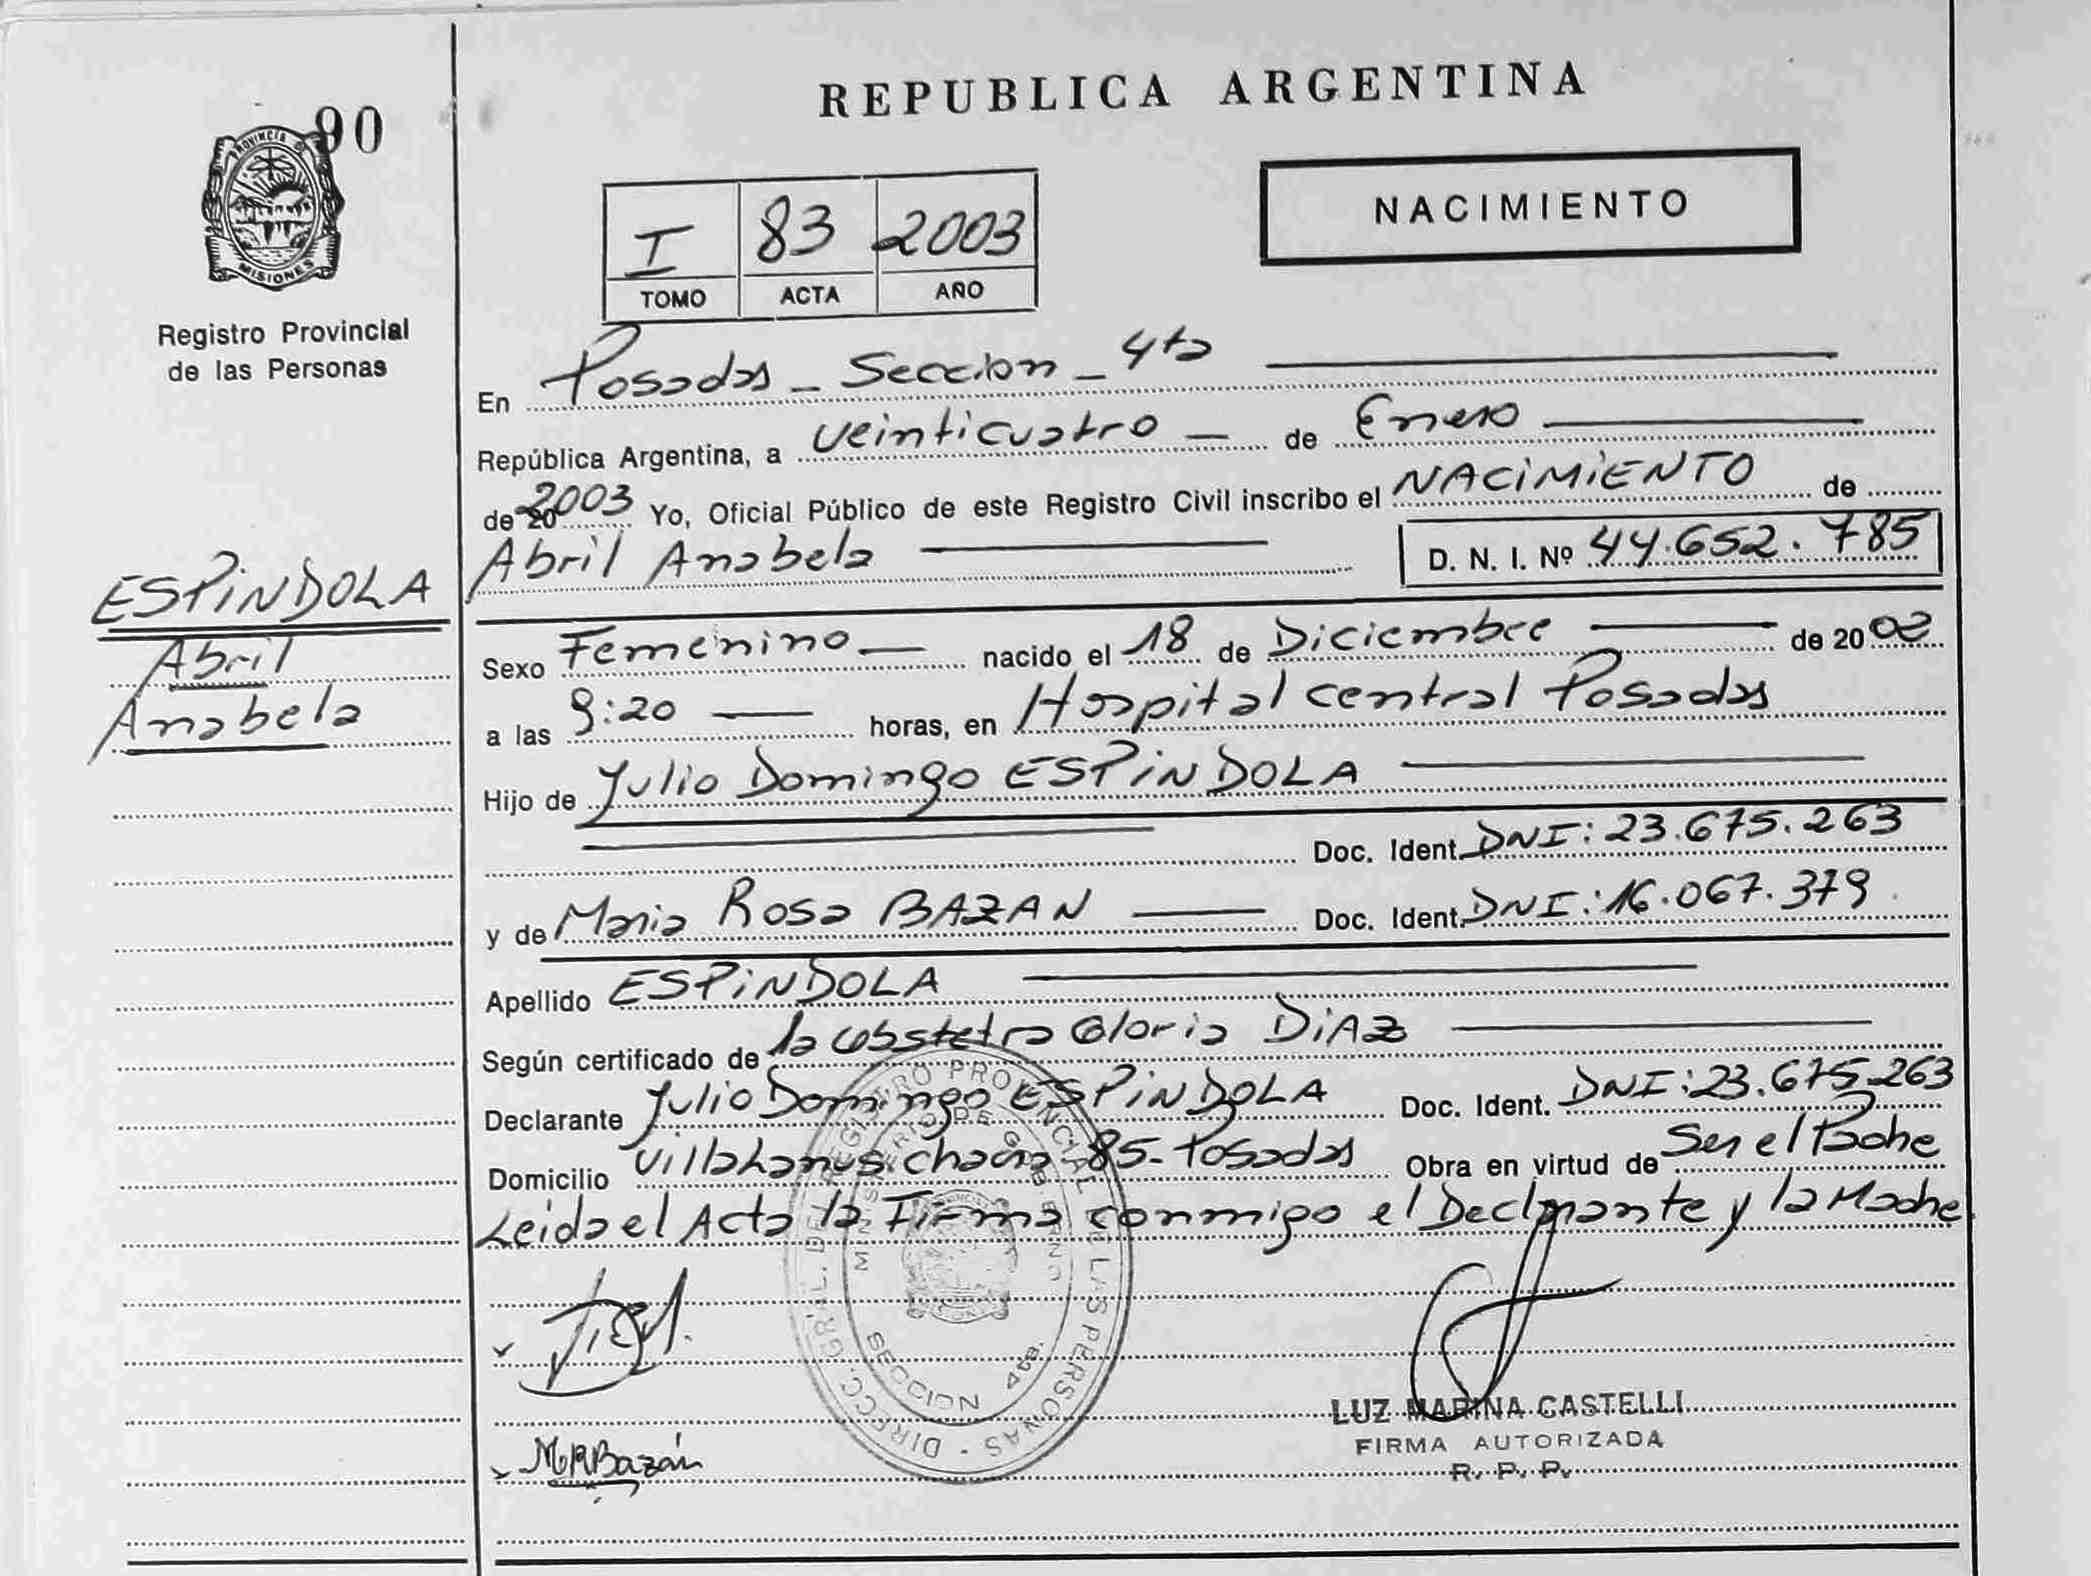 90
PROVINCIA DE
MISIONES
Registro Provincial
de las Personas
REPUBLICA ARGENTINA
NACIMIENTO
I 83 2003
TOMO ACTA AÑO
En Posadas - Seccion - 4ta
República Argentina, a veinticuatro de Enero
de 20 2003 Yo, Oficial Público de este Registro Civil inscribo el NACIMIENTO de
Abril Anabela D. N. I. Nº 44.652.785
ESPINDOLA
Abril
Anabela
Sexo Femenino nacido el 18 de Diciembre de 20 02
a las 9:20 horas, en Hospital central Posadas
Hijo de Julio Domingo ESPINDOLA
Doc. Ident. DNI: 23.675.263
y de Maria Rosa BAZAN Doc. Ident. DNI: 16.067.379
Apellido ESPINDOLA
Según certificado de la obstetra Gloria DIAZ
Declarante Julio Domingo ESPINDOLA Doc. Ident. DNI: 23.675.263
Domicilio Villa Lanus. chacra 85 - Posadas Obra en virtud de Ser el Padre
Leida el Acta la Firma conmigo el Declarante y la Madre
DIRECC. GRAL. DEL REGISTRO PROVINCIAL DE LAS PERSONAS
MINISTERIO DE GOBIERNO
SECCION 4ta.
MRBazán
LUZ MARINA CASTELLI
FIRMA AUTORIZADA
R. P. P.